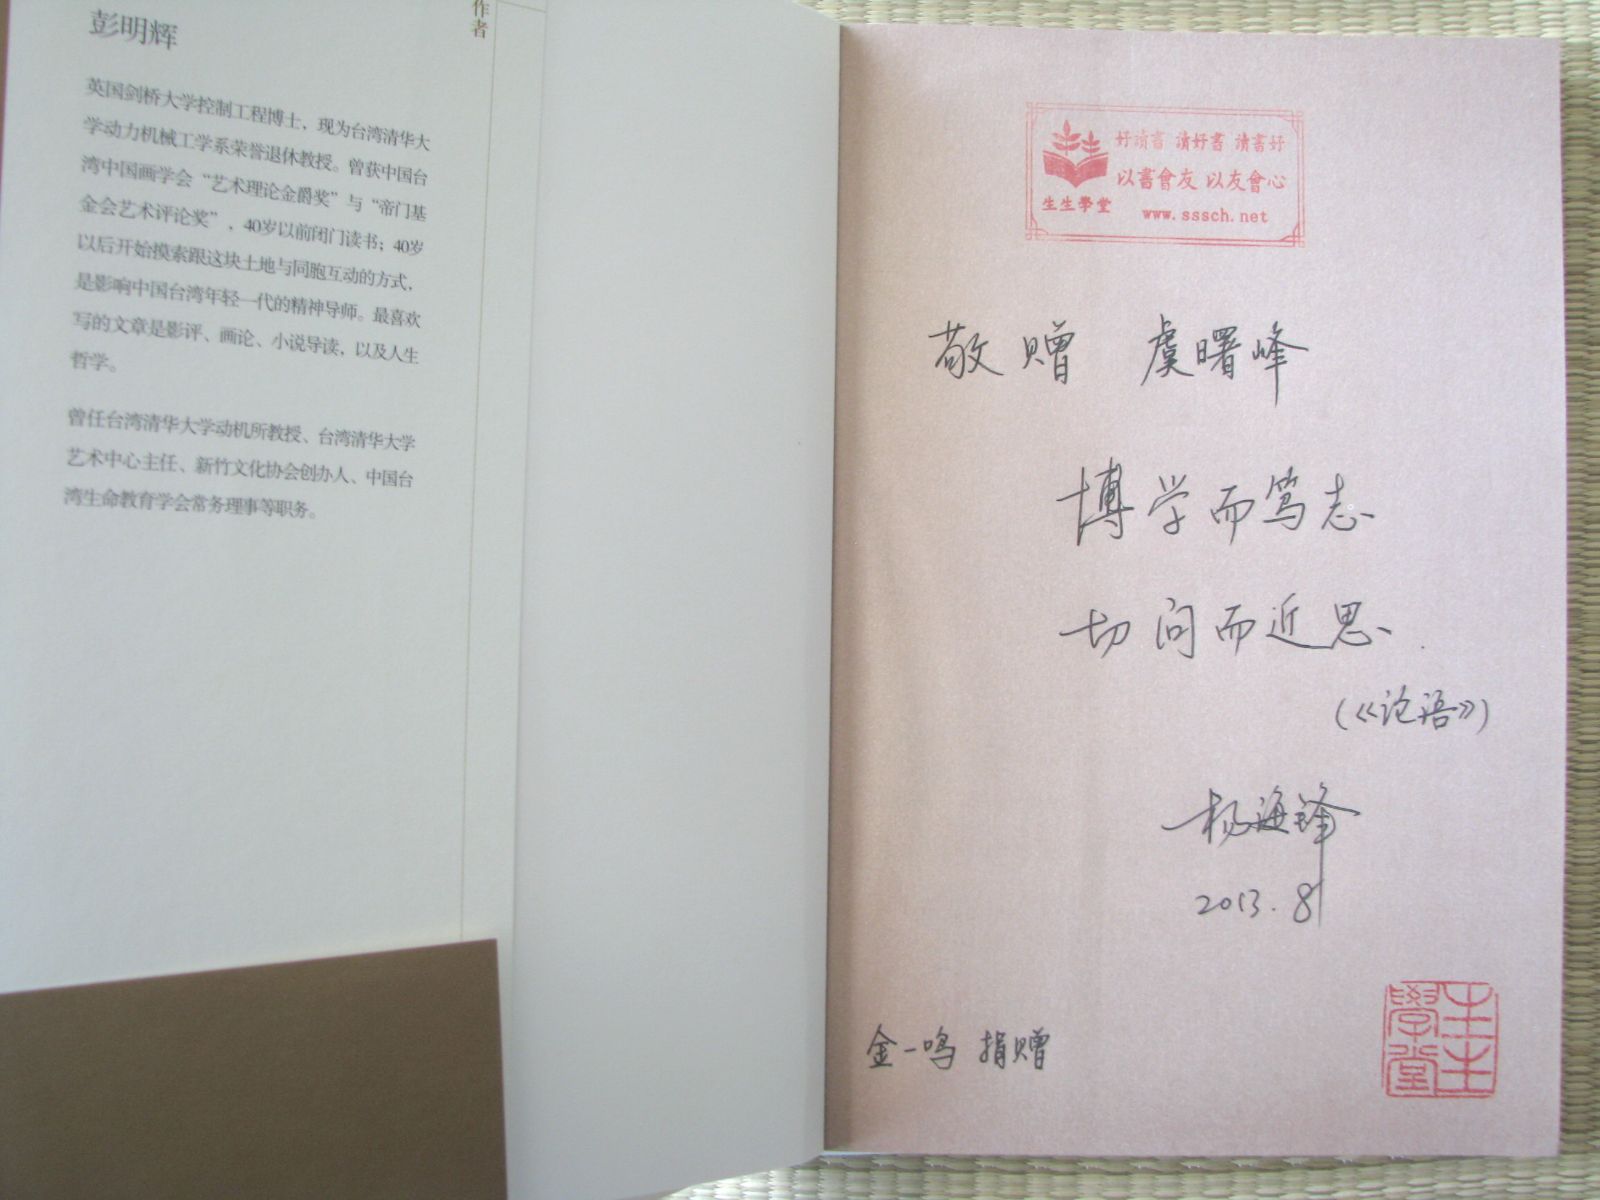 作者
彭明辉
英国剑桥大学控制工程博士，现为台湾清华大
学动力机械工学系荣誉退休教授。曾获中国台
湾中国画学会“艺术理论金爵奖”与“帝门基
金会艺术评论奖”，40岁以前闭门读书；40岁
以后开始摸索跟这块土地与同胞互动的方式，
是影响中国台湾年轻一代的精神导师。最喜欢
写的文章是影评、画论、小说导读，以及人生
哲学。
曾任台湾清华大学动机所教授、台湾清华大学
艺术中心主任、新竹文化协会创办人、中国台
湾生命教育学会常务理事等职务。
好讀書 讀好書 讀書好
以書會友 以友會心
生生學堂 www.sssch.net
敬赠 虞曙峰
博学而笃志
切问而近思.
(《论语》)
杨海锋
2013.8
金一鸣 捐赠
生生學堂